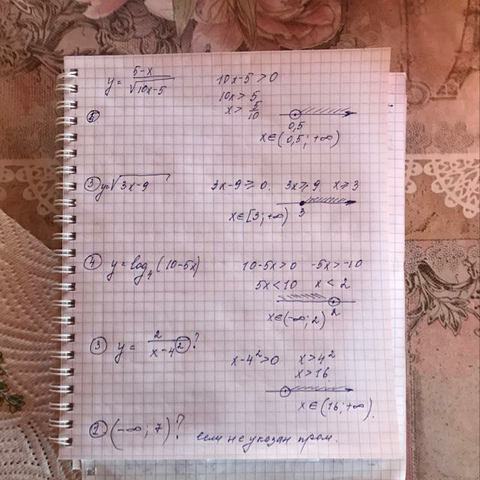 y = 5-x / √10x-5   10x-5>0
10x>5
x> 5/10
⑤   0,5
x∈(0,5; +∞)
③ y=√3x-9   3x-9≥0.   3x≥9   x≥3
x∈[3; +∞)   3
④ y=log₄(10-5x)   10-5x>0   -5x>-10
5x<10   x<2
x∈(-∞; 2)   2
③ y = 2 / x-4² ?   x-4²>0   x>4²
x>16
x∈(16; +∞).
② (-∞; 7)? если не указан пром.